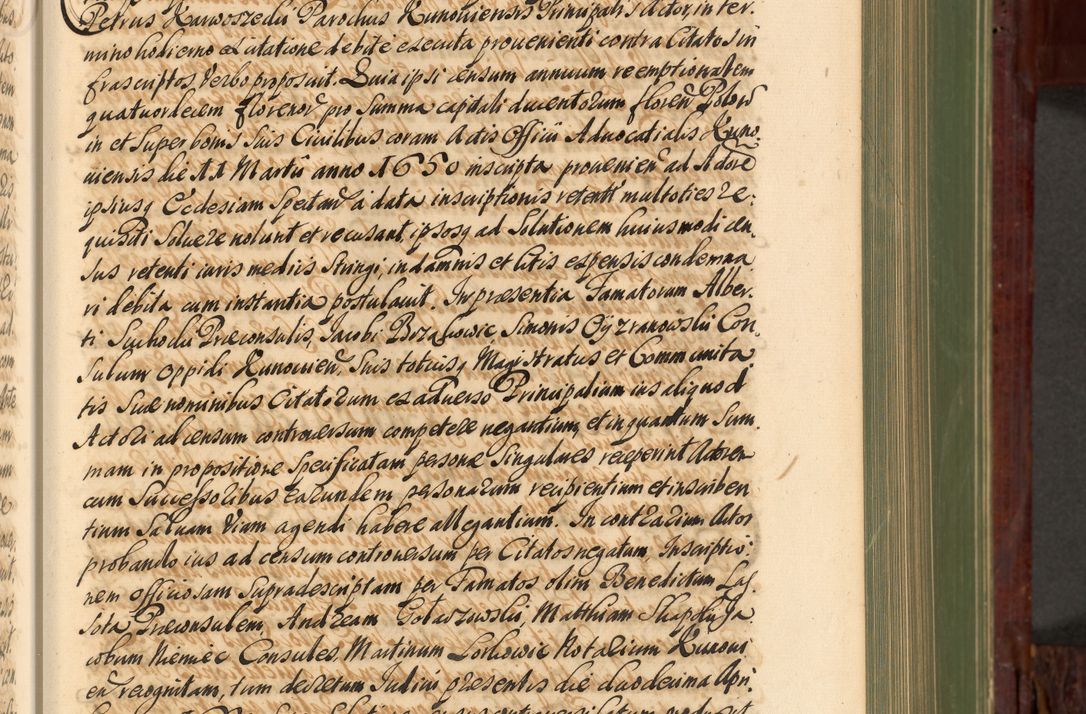 Petrus Karwoszecki Parochus Kunoviensis Principalis Actor, in ter-
mino hodierno ex Citatione debite executa provenienti contra Citatos in
frascriptos Verbo proposuit. Quia ipsi censum annuum reemptionalem
quatuordecem florenor pro Summa capitali ducentorum floren Polon
in et Super bonis Suis Civilibus coram Actis Officii Advocatialis Kuno-
viensis die 11 Martii anno 1650 inscripta provenien ad Actore
ipsiusq Ecclesiam Spectan a data inscriptionis retenti multoties re-
quisiti Solvere nolunt et recusant, ipsosq ad Solutionem huiusmodi cen-
sus retenti iuris mediis Stringi, in damnis et litis expensis condemna
ri debita cum instantia postulavit. In praesentia Famatorum Alber-
ti Proconsulis, Jacobi Simonis Con-
sulum oppidi Kunovien, Suis totiusq Magistratus et Communita
tis Suae nominibus Citatorum ex adverso Principalium ius aliquod
Actori ad censum controversum competere negantium, et in quantum Sum-
mam in propositione Specificatam personae Singulares receperint Actorem
cum Successoribus earundem personarum recipientium et inscriben
tium Salvam Viam agendi habere allegantium. In contrarium Actor
probando ius ad censum controversum per Citatos negatum, Inscriptio-
nem officiosam Supradescriptam per Famatos olim Benedictum Las
sota Proconsulem, Andream Matthiam Ja
cobum Niemiec Consules, Martinum Notarium Kunovi
en recognitam, tum decretum Iudicii praesentis die duodecima Apri